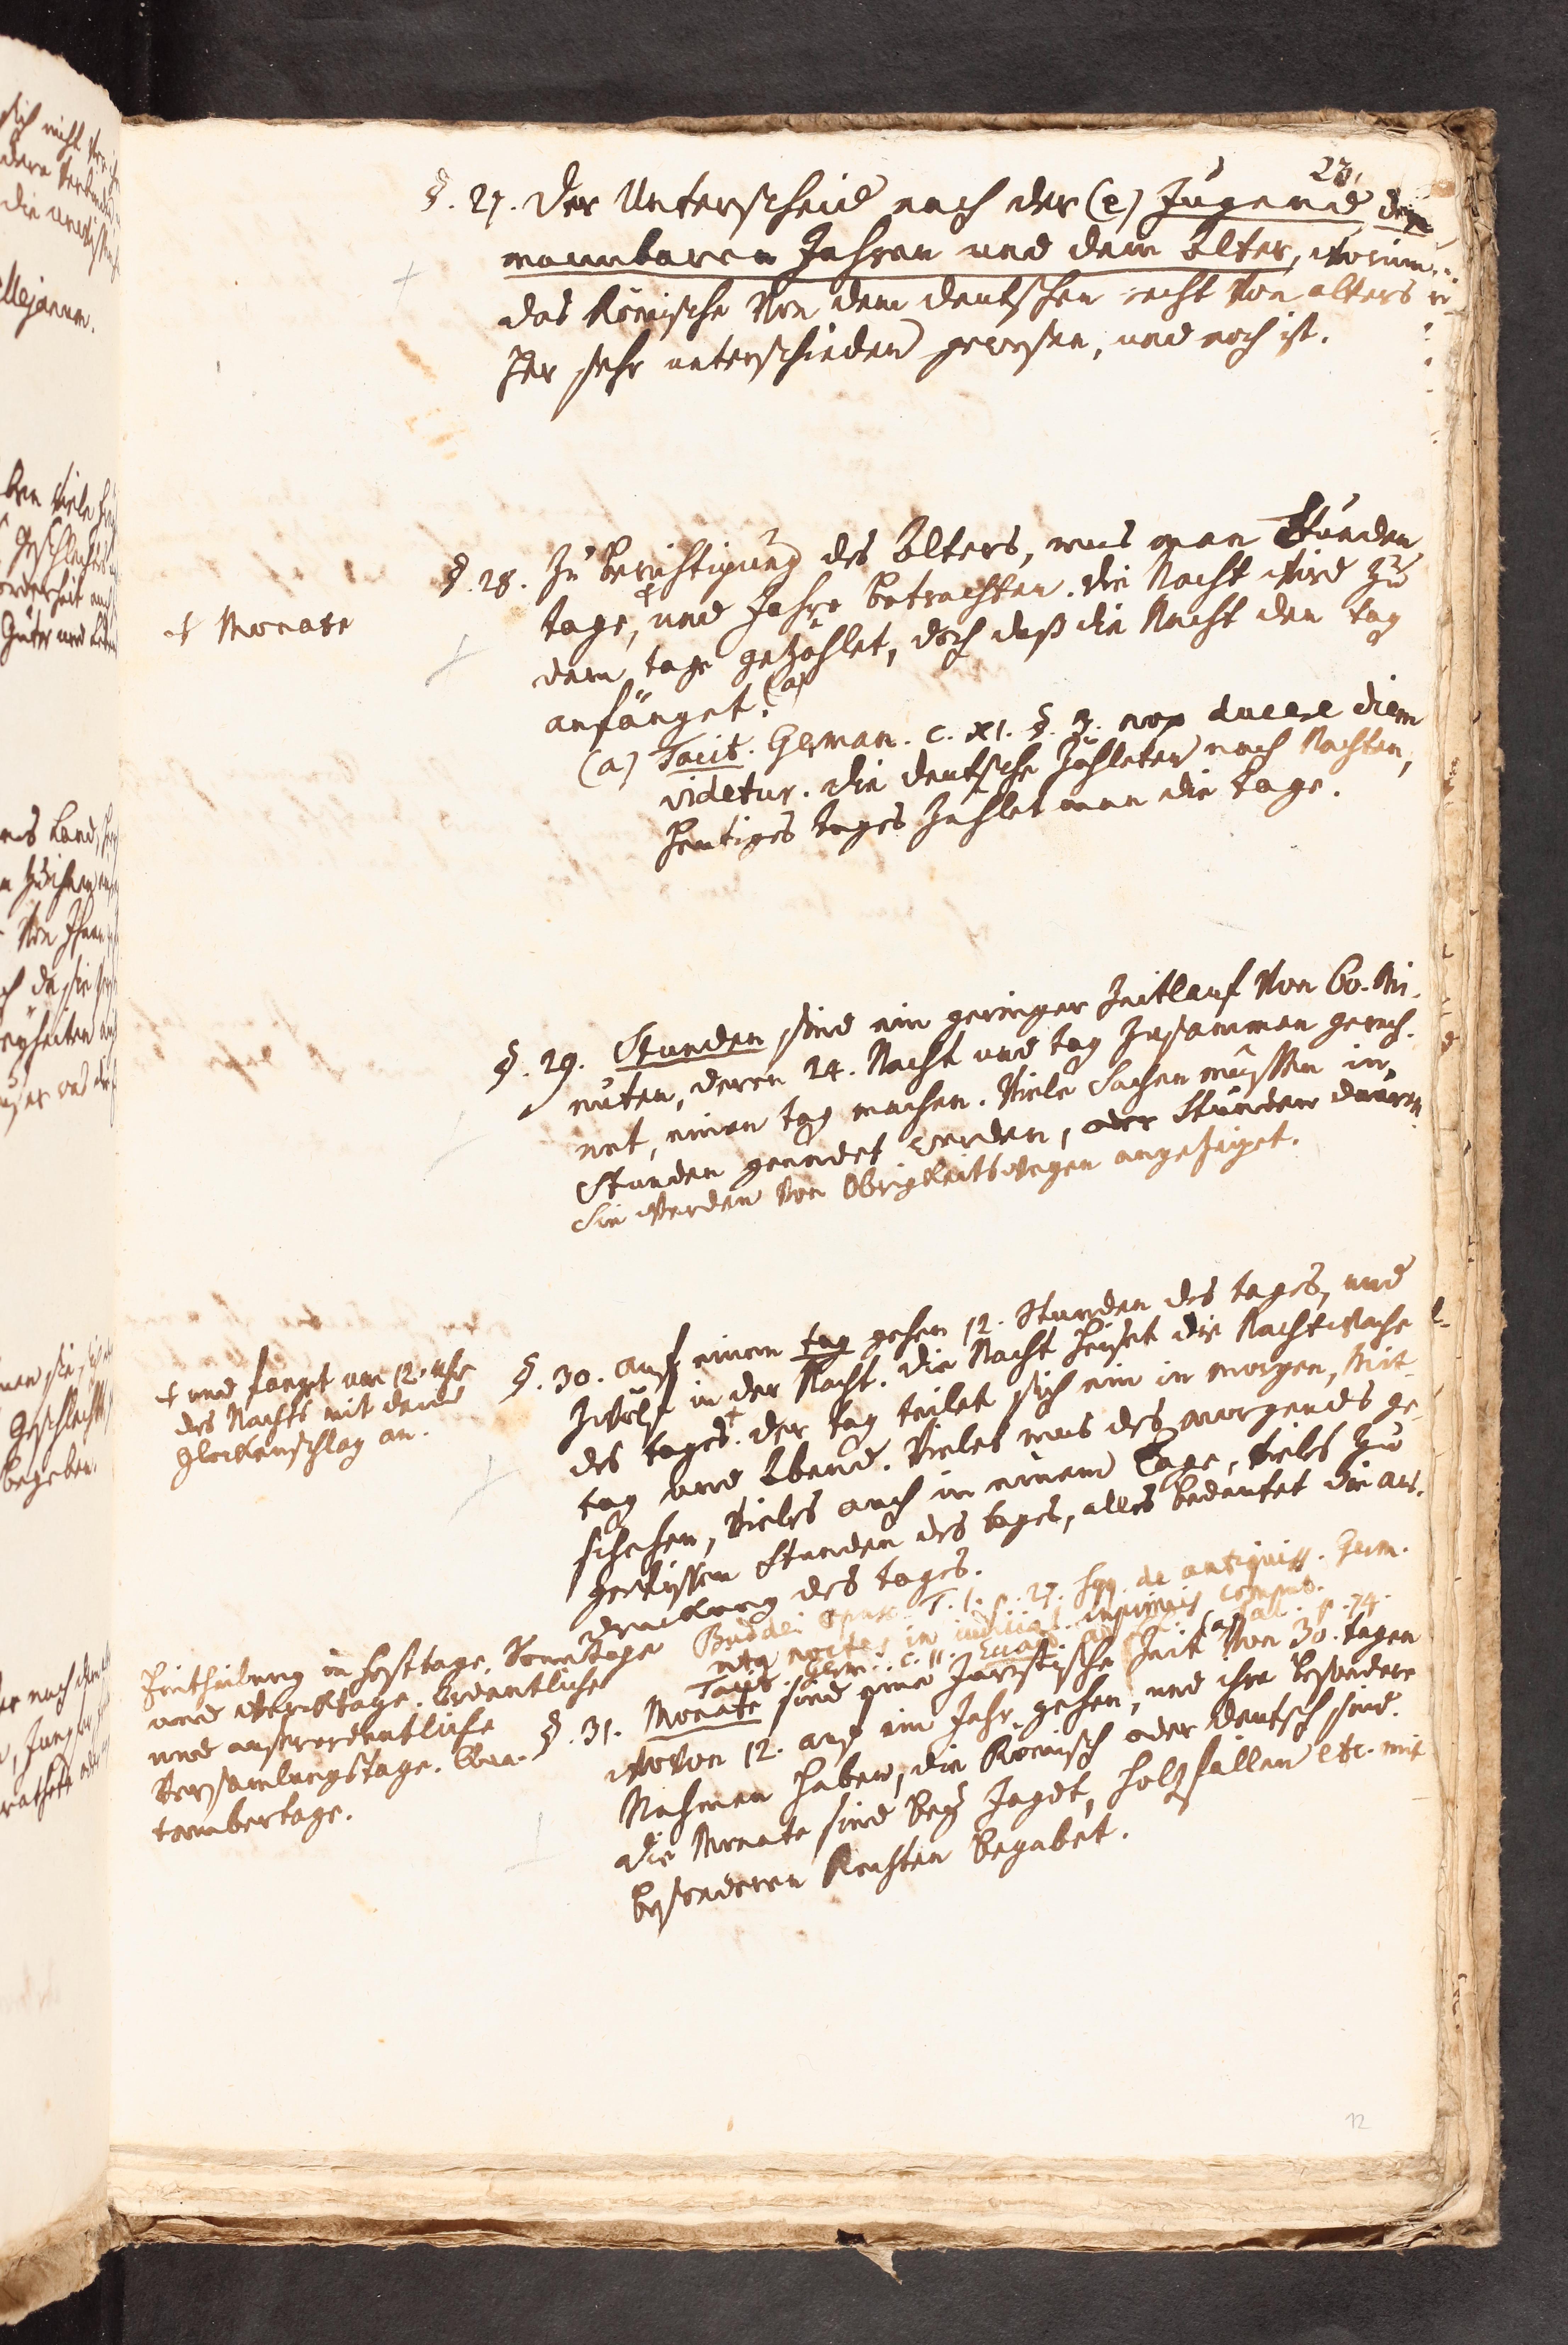 23.
§. 27. der Unterscheid nach der (e) Jugend, den
mannbaren Jahren und dem Alter, worinn
das Römische von dem deutschen recht von alters
her sehr unterschieden gewesen, und noch ist.
§. 28. Zu berichtigung des Alters, mus man Stunden
tage, † und Jahre betrachten. die Nacht wird zu
† Monate
dem tage gezählet, doch daß die Nacht den tag
anfänget. (a)
(a) Tacit. German. c. XI. §. 3. nox ducere diem
videtur. die deutsche zähleten nach Nachten,
heutiges tages zahlet man die tage.
§. 29. Stunden sind ein geringer Zeitlauf von 60. Mi-
nuten, deren 24. Nacht und tag zusammen gerech-
net, einen tag machen. Viele Sachen müssen in
Stunden geendet werden, oder Stunden dauren
Sie werden von Obrigkeitswegen angezeiget.
§. 30. auf einen tag gehen 12. Stunden des tages, und
zwölf in der Nacht. die Nacht heiset die Nachtwache
des tages. † der tag teilet sich ein in morgen, Mit-
tag und Abend. Vieles mus des morgends ge-
schehen, vieles auch in einem Tage, vieles zu
gewissen Stunden des tages, alles bedeutet die aus-
druckung des tages.
† und fanget um 12. Uhr
des Nachts mit dem
glockenschlag an.
Buddei Opusc. T. 1. p. 27. sqq. de antiquiss. Germ.
noctes in judiciis inprimis comput.
Tacit. Germ. c. 11. Sal. p. 74.
Eintheilung in festtage, Sonntage
und Werktage. Ordentliche
und ausserordentliche
Versamlungstage. Qua-
tembertage.
§. 31. Monate sind eine Juristische Zeit (a) von 30. tagen
wovon 12. auf ein Jahr gehen, und ihre besondere
Nahmen haben, die Römisch oder deutsch sind.
die Monate sind bey Jagdt, holzfällen etc. mit
besonderen Rechten begabet.
12